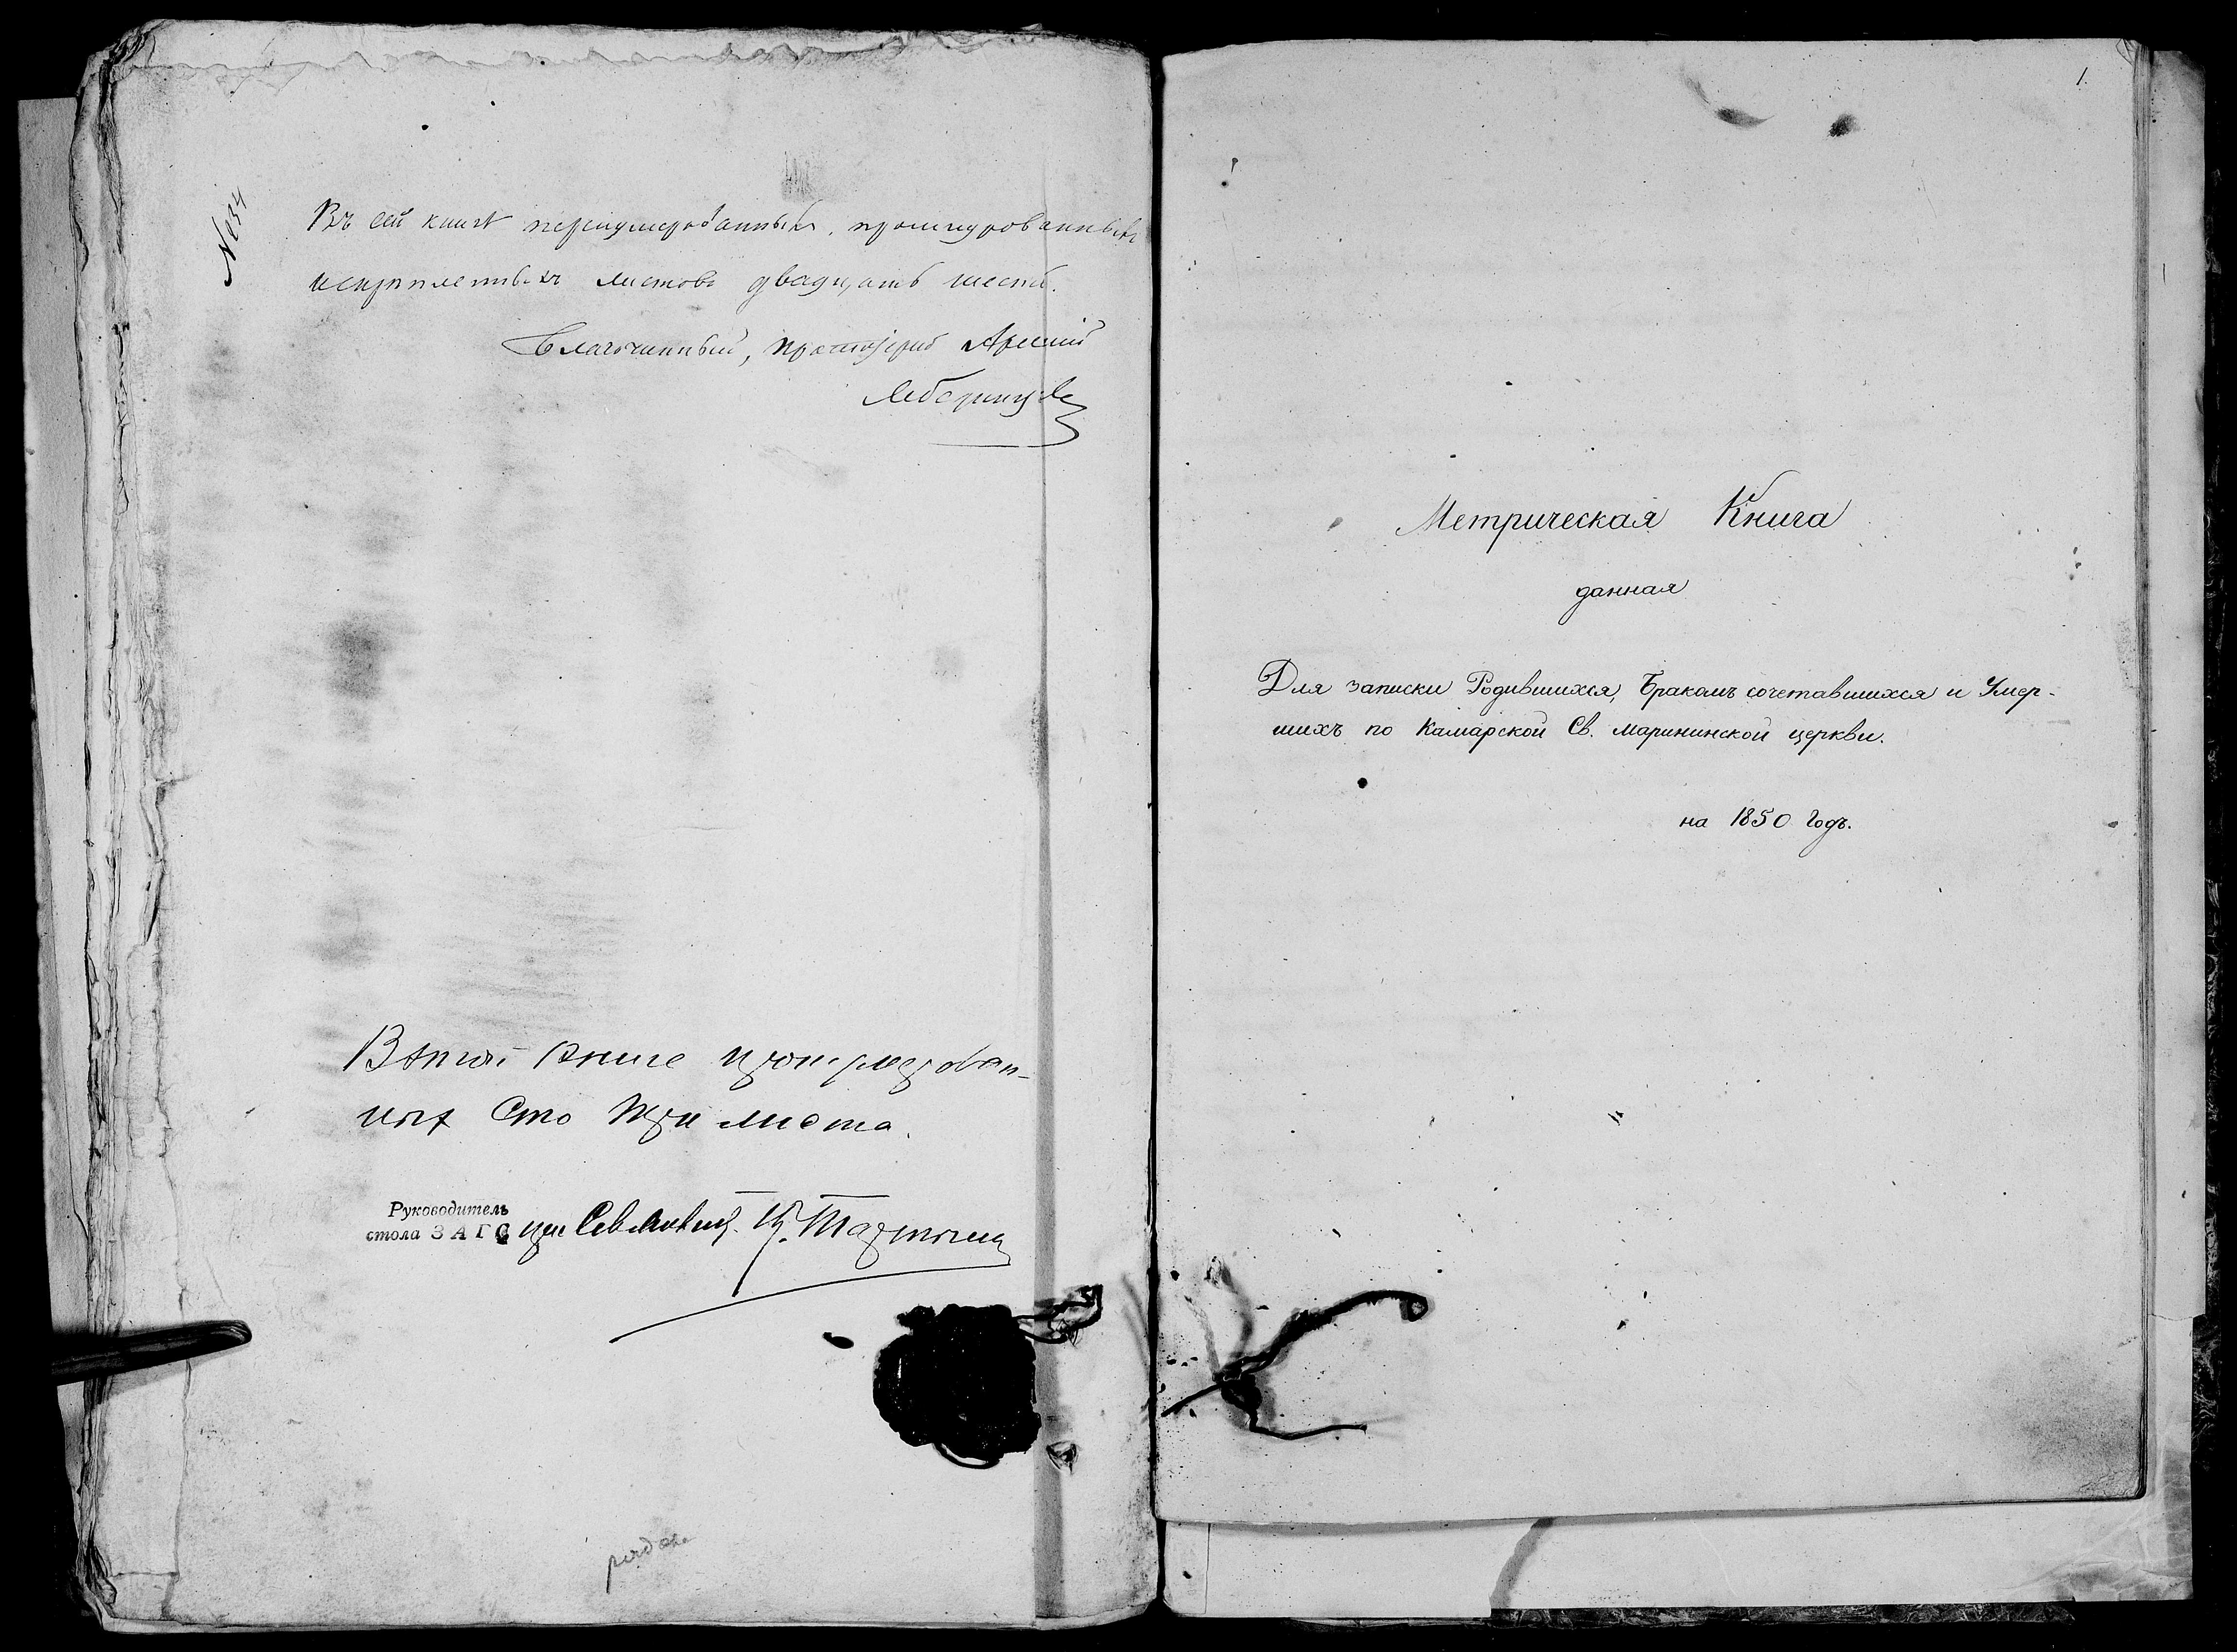 № 34
Въ сей книгѣ перенумерованныхъ, прошнурованныхъ
и скрѣпленныхъ листовъ двадцать шесть.
Благочинный, протоіерей Арсеній
Лебединцевъ
В этой книге пронумерован-
ных Сто три листа.
Руководитель
стола ЗАГС при
1.
Метрическая Книга
данная
Для записки Родившихся, Бракомъ сочетавшихся и Умер-
шихъ по Камарской Св. Марининской церкви.
на 1850 Годъ.